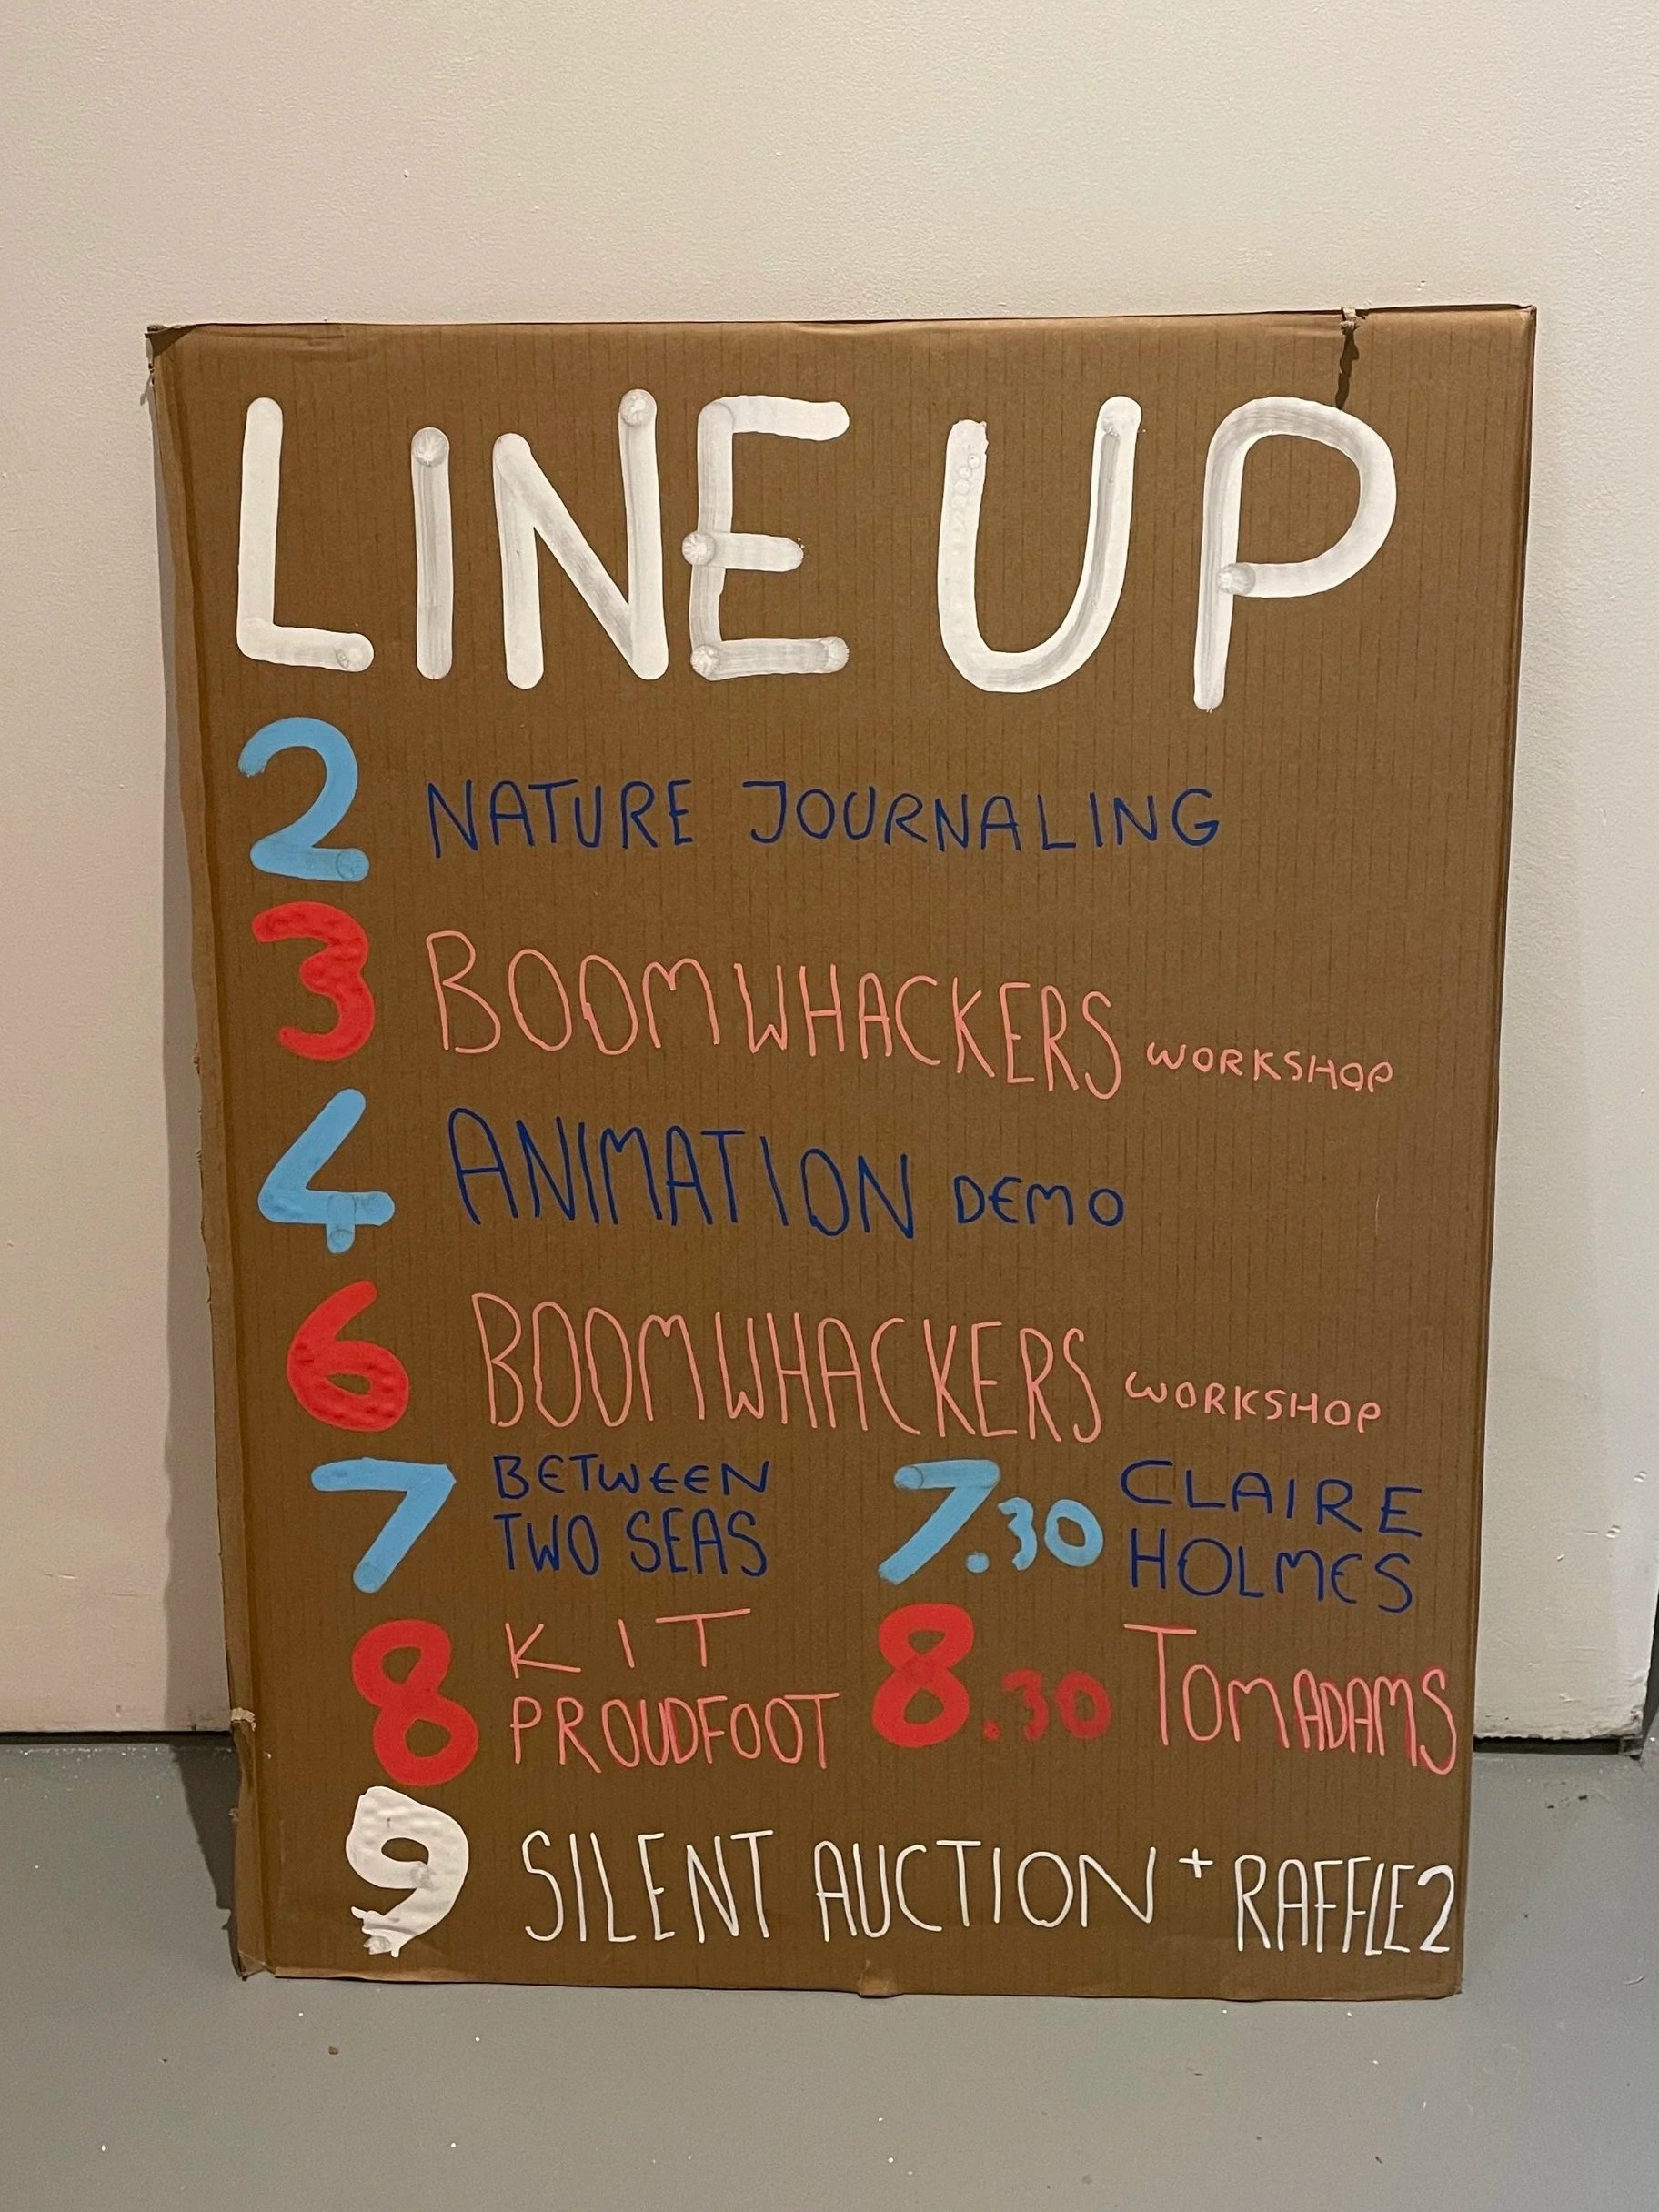 LINE UP
2 NATURE JOURNALING
3 BOOMWHACKERS WORKSHOP
4 ANIMATION DEMO
6 BOOMWHACKERS WORKSHOP
7 BETWEEN
TWO SEAS
7.30 CLAIRE
HOLMES
8 KIT
PROUDFOOT
8.30 TOM ADAMS
9 SILENT AUCTION + RAFFLE 2